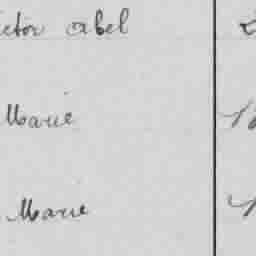 ictor Abel
Marie
Marie